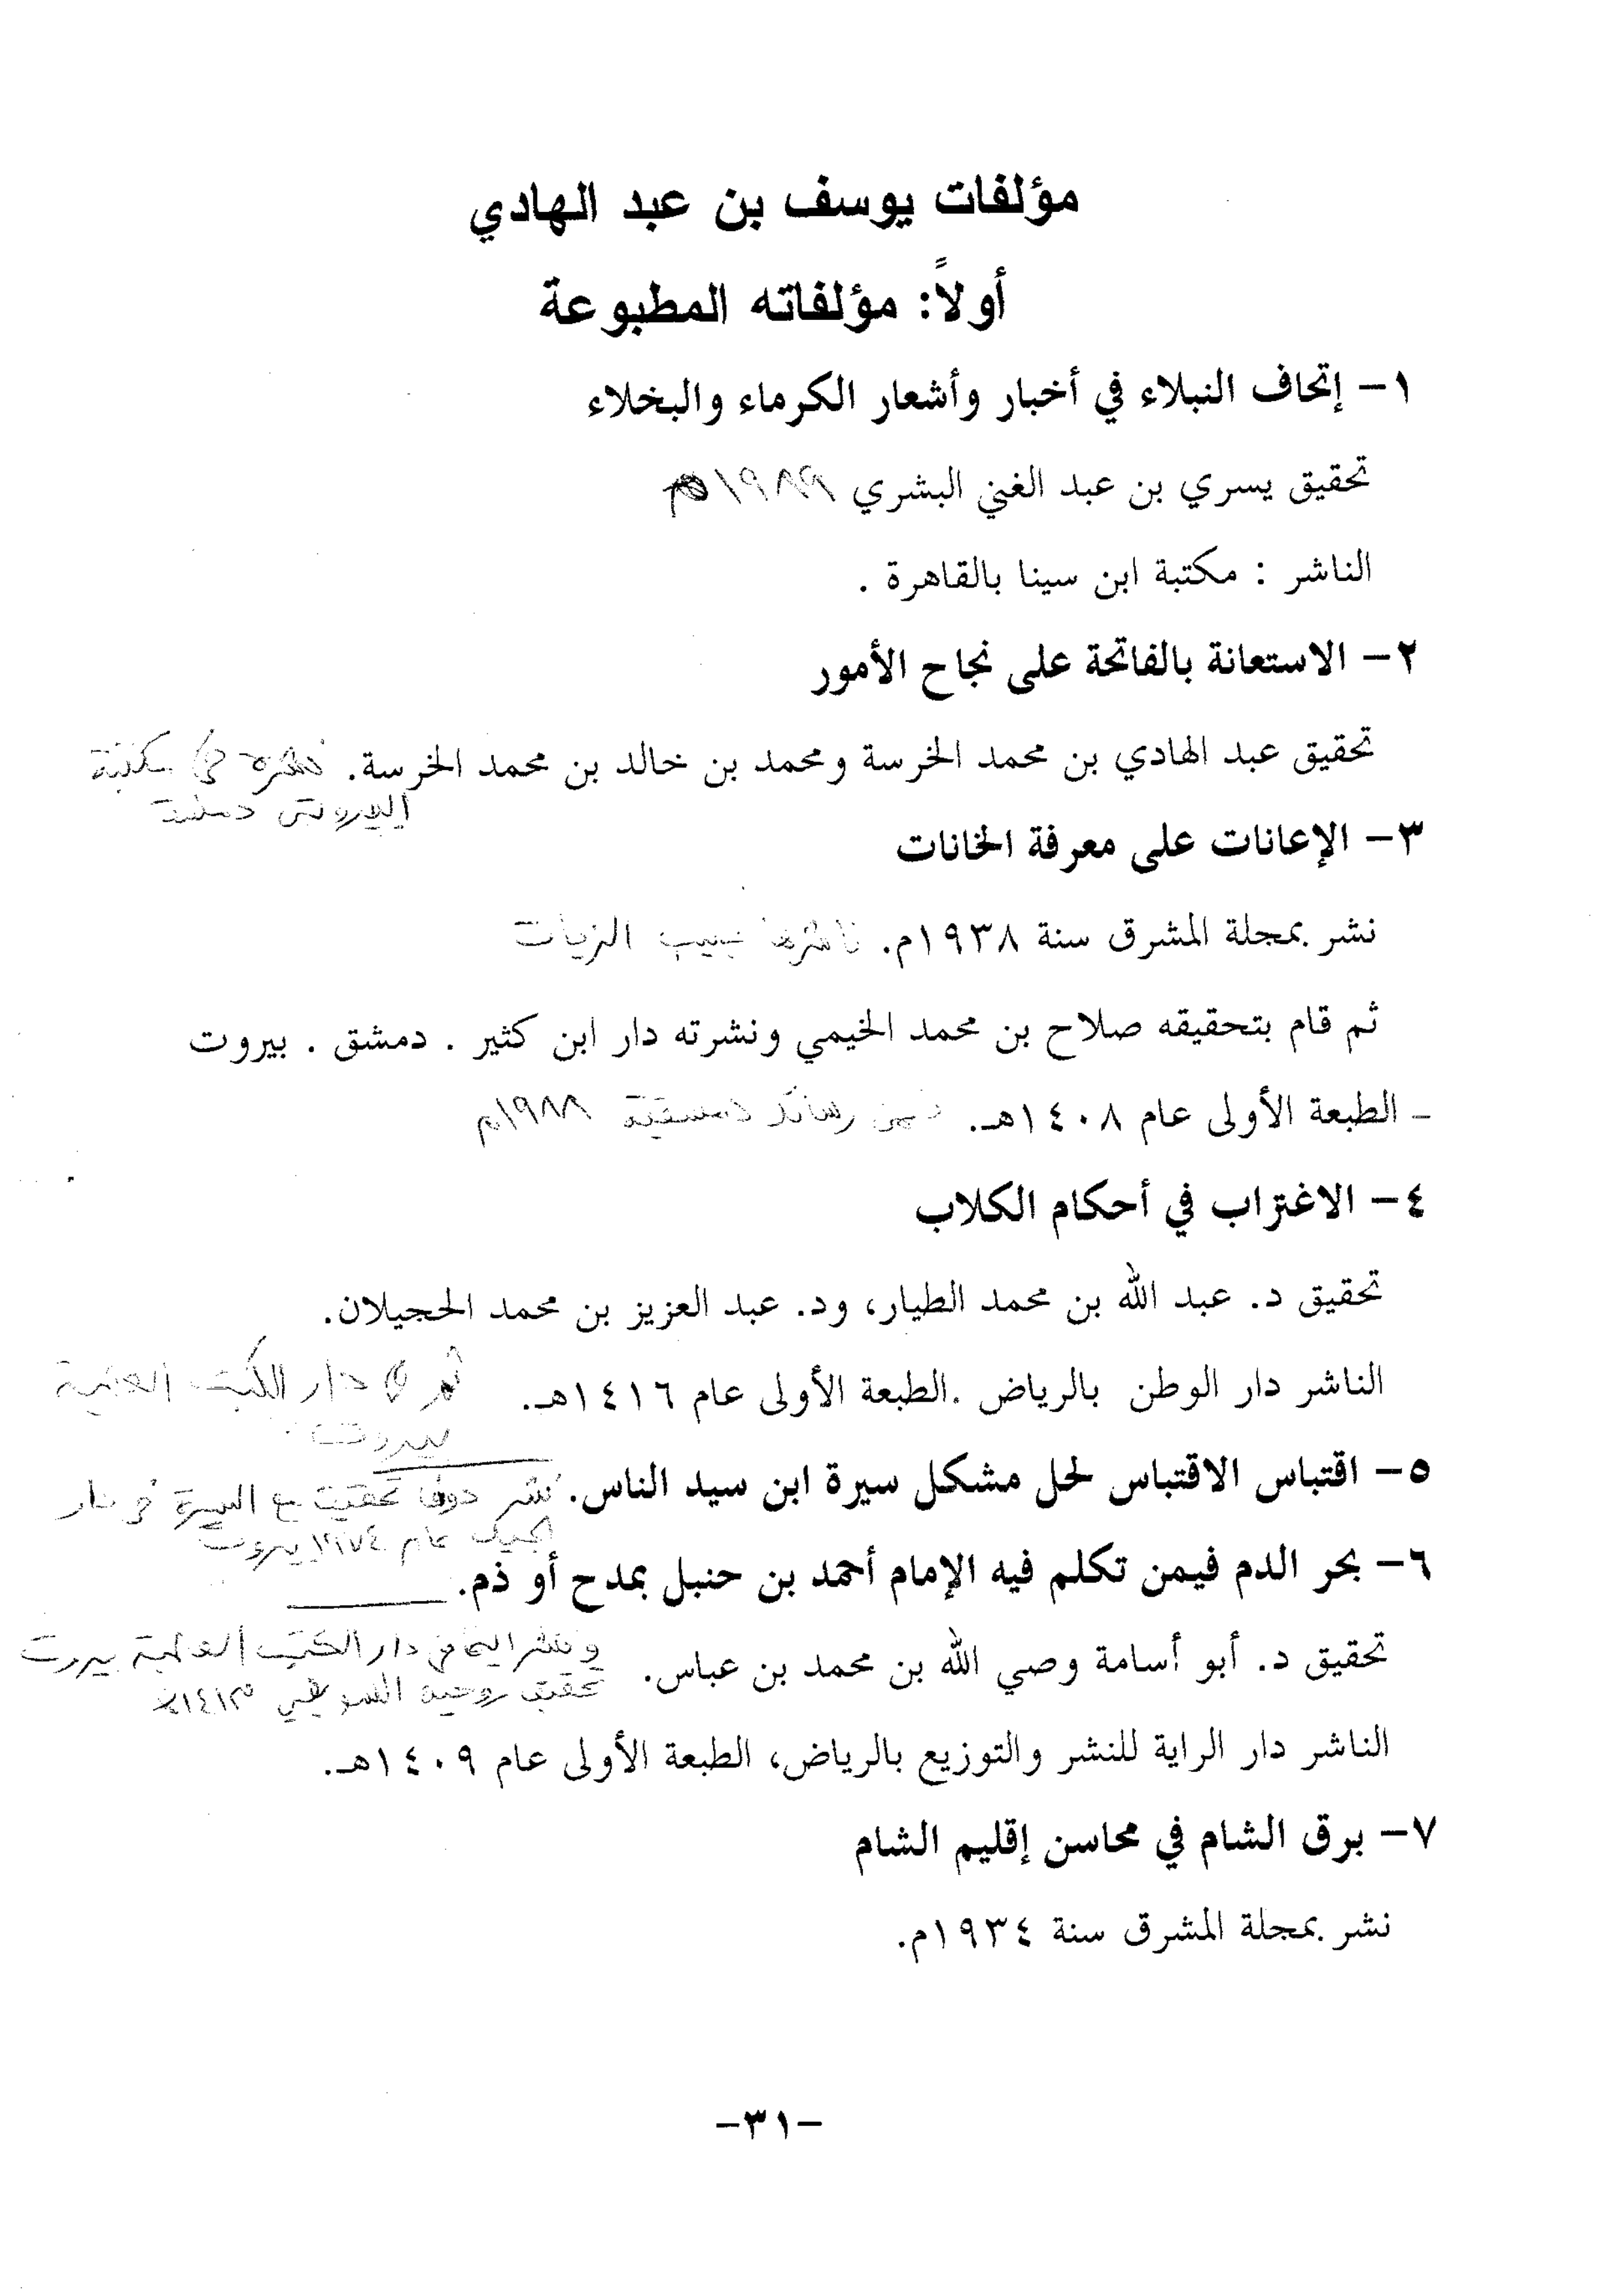 مؤلفات يوسف بن عبد الهادي
أولاً: مؤلفاته المطبوعة
١– إتحاف النبلاء في أخبار وأشعار الكرماء والبخلاء
تحقيق يسري بن عبد الغني البشري ١٩٨٩
الناشر : مكتبة ابن سينا بالقاهرة .
٢– الاستعانة بالفاتحة على نجاح الأمور
تحقيق عبد الهادي بن محمد الخرسة ومحمد بن خالد بن محمد الخرسة. مكتبة
البيروتي دمشق
٣– الإعانات على معرفة الخانات
نشر بمجلة المشرق سنة ١٩٣٨م. حبيب الزيات
ثم قام بتحقيقه صلاح بن محمد الخيمي ونشرته دار ابن كثير . دمشق . بيروت
– الطبعة الأولى عام ١٤٠٨هـ. ضمن رسائل دمشقية ١٩٨٨م
٤– الاغتراب في أحكام الكلاب
تحقيق د. عبد الله بن محمد الطيار، ود. عبد العزيز بن محمد الحجيلان.
الناشر دار الوطن بالرياض .الطبعة الأولى عام ١٤١٦هـ. ثم في دار الكتب العلمية
بيروت
٥– اقتباس الاقتباس لحل مشكل سيرة ابن سيد الناس. نشر دون تحقيق مع السيرة في دار
الجيل عام بيروت
٦– بحر الدم فيمن تكلم فيه الإمام أحمد بن حنبل بمدح أو ذم.
تحقيق د. أبو أسامة وصي الله بن محمد بن عباس. ونشر أيضا في دار الكتب العلمية بيروت
تحقيق روحية السويفي
الناشر دار الراية للنشر والتوزيع بالرياض، الطبعة الأولى عام ١٤٠٩هـ.
٧– برق الشام في محاسن إقليم الشام
نشر بمجلة المشرق سنة ١٩٣٤م.
–٣١–